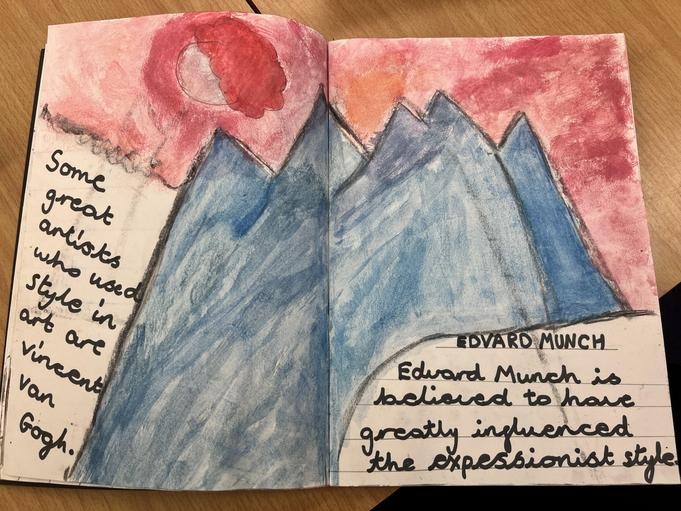 Some
great
artists
who used
style in
art are
vincent
van
Gogh.
EDVARD MUNCH
Edvard Munch is
believed to have
greatly influenced
the expessionist style.